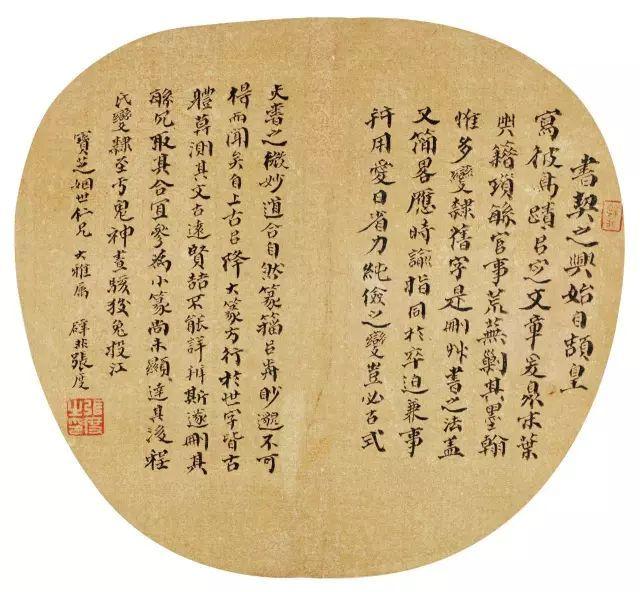 書契之興始自頡皇
寫彼鳥蹟㠯定文章爰臮末葉
典籍瑣緐官事荒蕪剿其墨翰
惟多變隸舊字是刪艸書之法蓋
又簡畧應時諭指同於卒迫兼事
并用愛日省力純儉之變豈必古式
夫書之微妙道合自然篆籀㠯前眇邈不可
得而聞矣自上古㠯降大篆方行於世字皆古
體莫測其文古遠賢喆不能詳辨斯遂刪其
緐冗取其合宜參為小篆尚未顯達其後程
氏變隸至于鬼神晝駭狡兔投江
寶芝姻世仁兄 大雅屬 辟非張度
張度之印